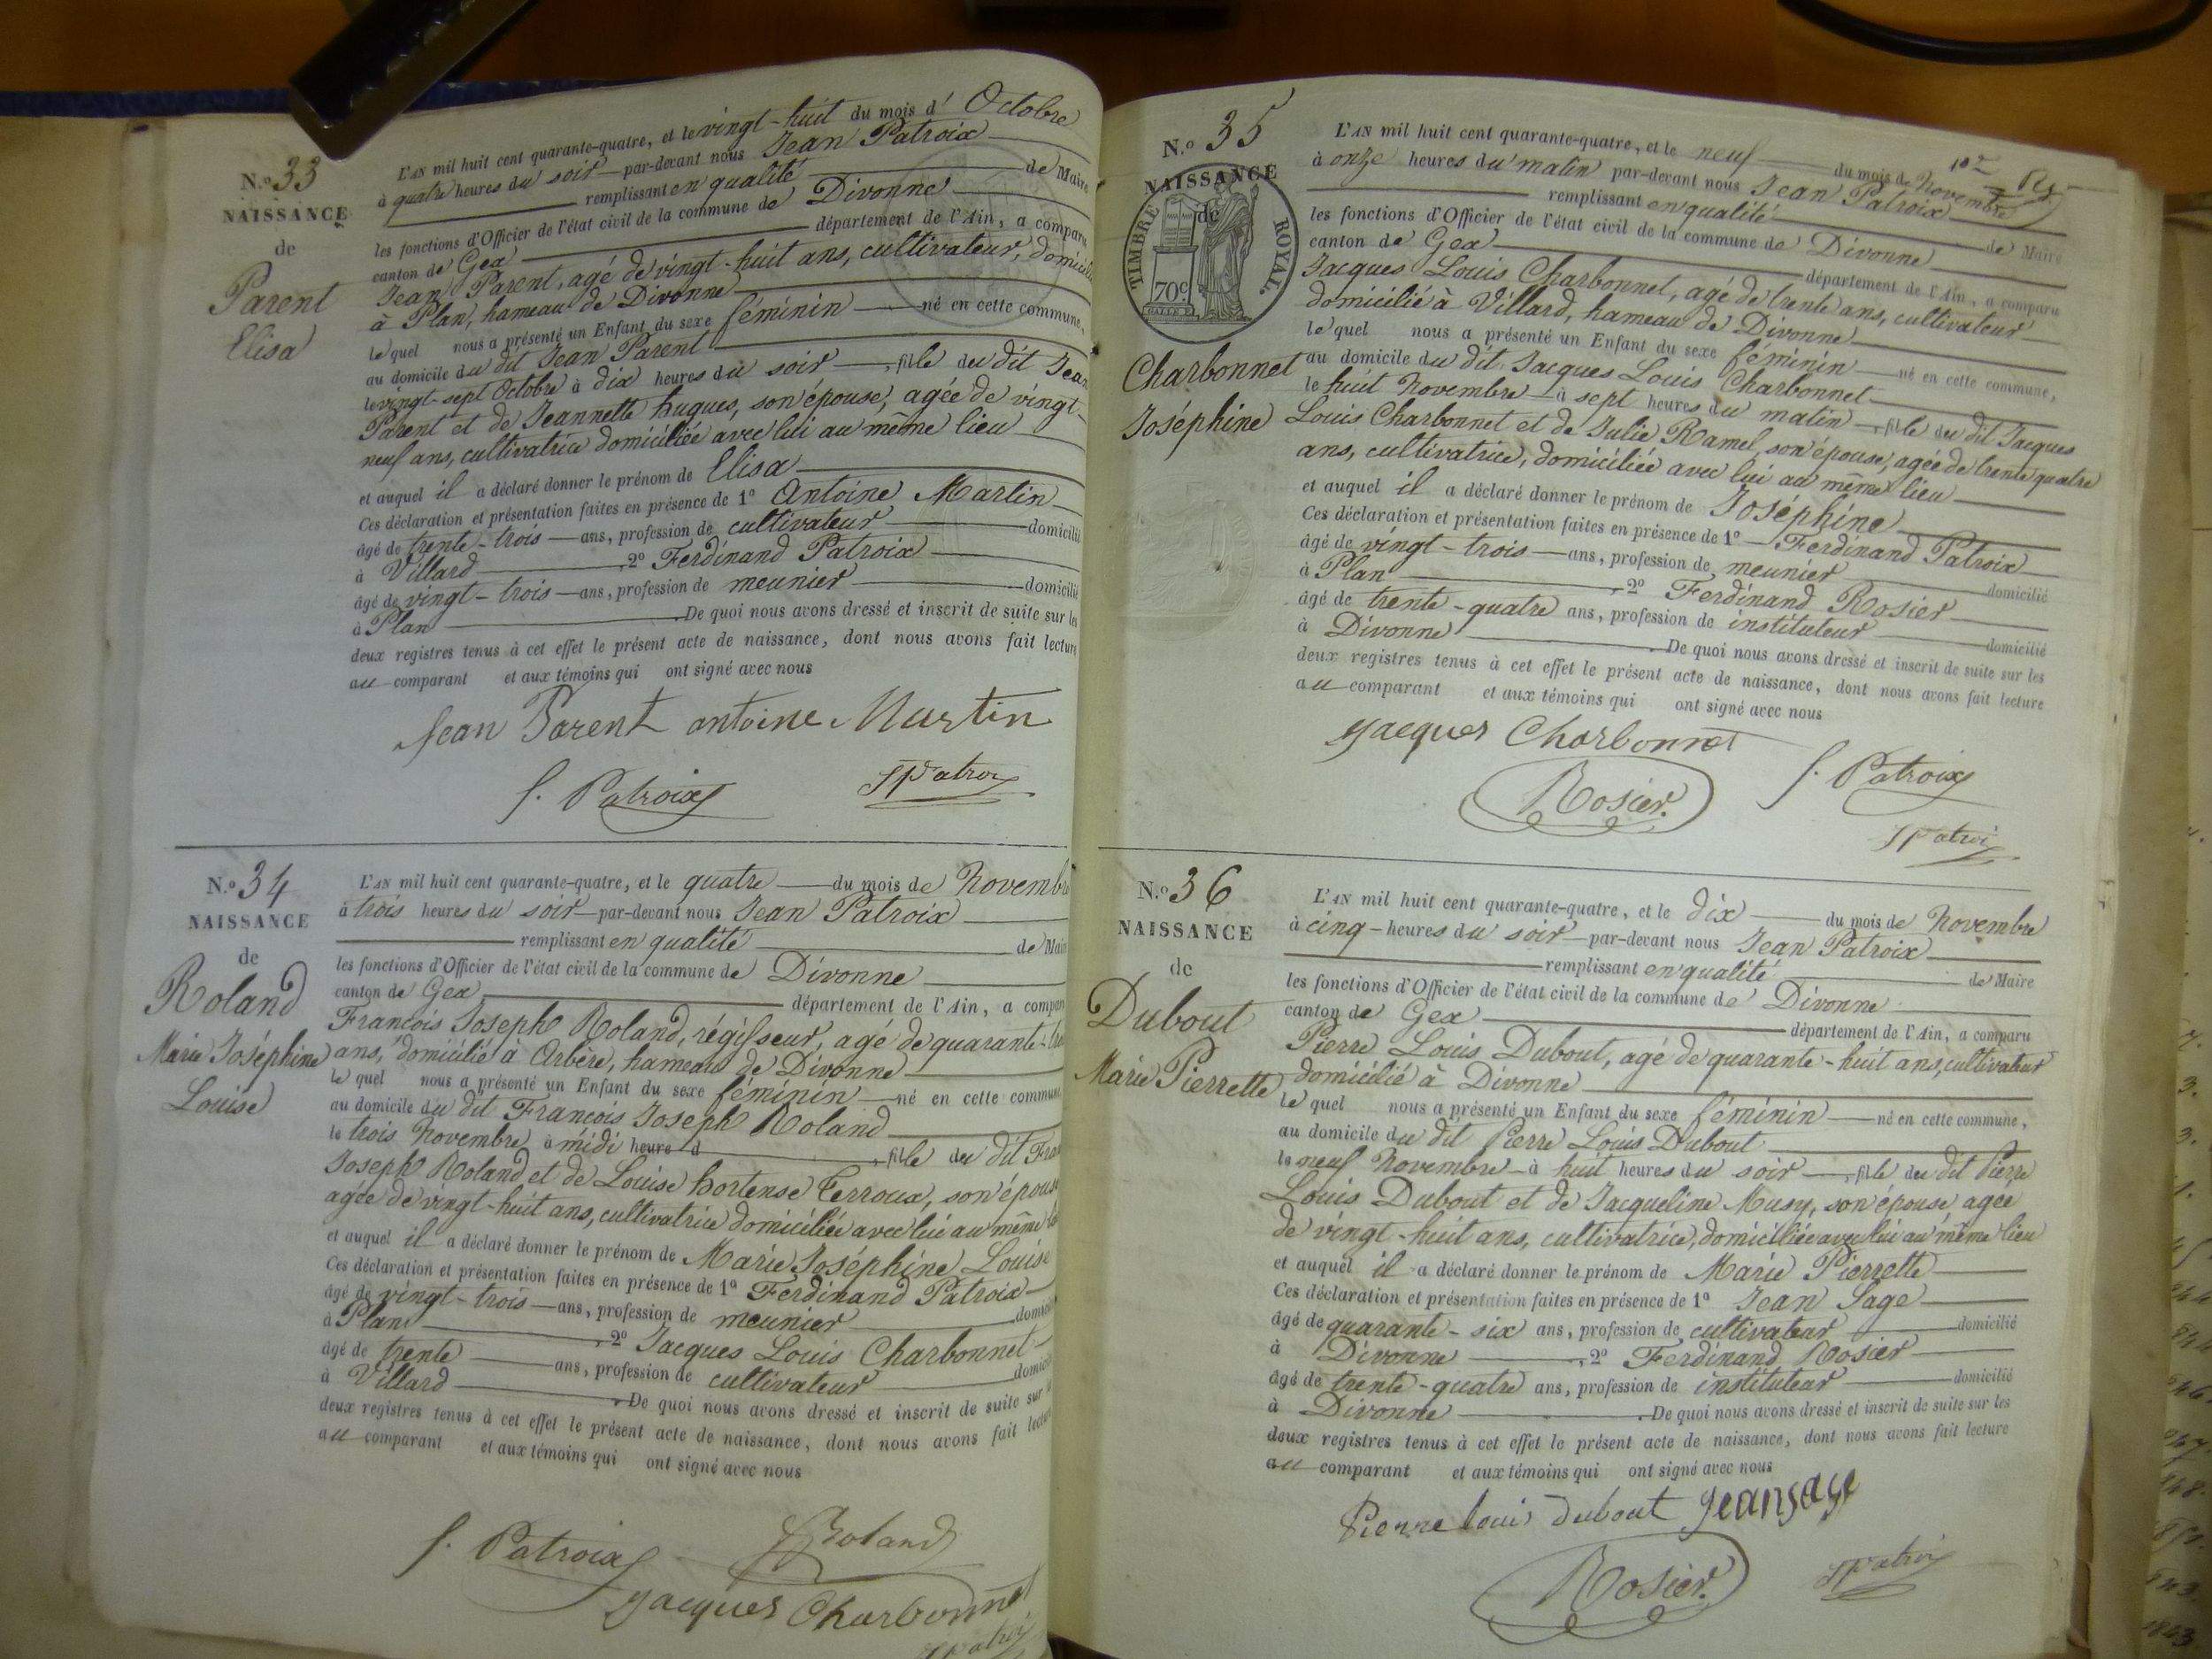 N.o 33
NAISSANCE
de
Parent
Elisa
L'AN mil huit cent quarante-quatre, et le vingt-huit du mois d' Octobre
à quatre heures du soir par-devant nous Jean Patroix
remplissant en qualité de Maire
les fonctions d'Officier de l'état civil de la commune de Divonne
canton de Gex département de l'Ain, a comparu
Jean Parent, agé de vingt-huit ans, cultivateur, domicilié
à Plan, hameau de Divonne
lequel nous a présenté un Enfant du sexe féminin né en cette commune,
au domicile du dit Jean Parent
le vingt-sept Octobre à dix heures du soir, fille du dit Jean
Parent et de Jeannette hugues, son épouse, agée de vingt-
neuf ans, cultivatrice domiciliée avec lui au même lieu
et auquel il a déclaré donner le prénom de Elisa
Ces déclaration et présentation faites en présence de 1º Antoine Martin
âgé de trente-trois ans, profession de cultivateur domicilié
à Villard, 2º Ferdinand Patroix
âgé de vingt-trois ans, profession de meunier domicilié
à Plan. De quoi nous avons dressé et inscrit de suite sur les
deux registres tenus à cet effet le présent acte de naissance, dont nous avons fait lecture
au comparant et aux témoins qui ont signé avec nous
Jean Parent antoine Martin
f. Patroix JPatroix
N.o 34
NAISSANCE
de
Roland
Marie Joséphine
Louise
L'AN mil huit cent quarante-quatre, et le quatre du mois de Novembre
à trois heures du soir par-devant nous Jean Patroix
remplissant en qualité de Maire
les fonctions d'Officier de l'état civil de la commune de Divonne
canton de Gex département de l'Ain, a comparu
François Joseph Roland, régisseur, agé de quarante-trois
ans, domicilié à Arbère, hameau de Divonne
lequel nous a présenté un Enfant du sexe féminin né en cette commune
au domicile du dit François Joseph Roland
le trois Novembre à midi heure d, fille du dit Fran
Joseph Roland et de Louise hortense Terroux, son épouse
agée de vingt-huit ans, cultivatrice domiciliée avec lui au même lieu
et auquel il a déclaré donner le prénom de Marie Joséphine Louise
Ces déclaration et présentation faites en présence de 1º Ferdinand Patroix
âgé de vingt-trois ans, profession de meunier domicilié
à Plan, 2º Jacques Louis Charbonnet
âgé de trente ans, profession de cultivateur domicilié
à Villard. De quoi nous avons dressé et inscrit de suite sur les
deux registres tenus à cet effet le présent acte de naissance, dont nous avons fait lecture
au comparant et aux témoins qui ont signé avec nous
f. Patroix Roland
Jacques Charbonnet
JPatroix
N.o 35
NAISSANCE
de
TIMBRE ROYAL.
70c
Charbonnet
Joséphine
L'AN mil huit cent quarante-quatre, et le neuf du mois de Novembre
à onze heures du matin par-devant nous Jean Patroix
remplissant en qualité de Maire
les fonctions d'Officier de l'état civil de la commune de Divonne
canton de Gex département de l'Ain, a comparu
Jacques Louis Charbonnet, agé de trente ans, cultivateur
domicilié à Villard, hameau de Divonne
lequel nous a présenté un Enfant du sexe féminin né en cette commune,
au domicile du dit Jacques Louis Charbonnet
le huit Novembre à sept heures du matin, fille du dit Jacques
Louis Charbonnet et de Julie Ramel, son épouse, agée de trente quatre
ans, cultivatrice, domiciliée avec lui au même lieu
et auquel il a déclaré donner le prénom de Joséphine
Ces déclaration et présentation faites en présence de 1º Ferdinand Patroix
âgé de vingt-trois ans, profession de meunier domicilié
à Plan, 2º Ferdinand Rosier
âgé de trente-quatre ans, profession de instituteur domicilié
à Divonne. De quoi nous avons dressé et inscrit de suite sur les
deux registres tenus à cet effet le présent acte de naissance, dont nous avons fait lecture
au comparant et aux témoins qui ont signé avec nous
Jacques Charbonnet
Rosier. f. Patroix
JPatroix
N.o 36
NAISSANCE
de
Dubout
Marie Pierrette
L'AN mil huit cent quarante-quatre, et le dix du mois de Novembre
à cinq heures du soir par-devant nous Jean Patroix
remplissant en qualité de Maire
les fonctions d'Officier de l'état civil de la commune de Divonne
canton de Gex département de l'Ain, a comparu
Pierre Louis Dubout, agé de quarante-huit ans, cultivateur
domicilié à Divonne
lequel nous a présenté un Enfant du sexe féminin né en cette commune,
au domicile du dit Pierre Louis Dubout
le neuf Novembre à huit heures du soir, fille du dit Pierre
Louis Dubout et de Jacqueline Musy, son épouse, agée
de vingt-huit ans, cultivatrice, domiciliée avec lui au même lieu
et auquel il a déclaré donner le prénom de Marie Pierrette
Ces déclaration et présentation faites en présence de 1º Jean Sage
âgé de quarante-six ans, profession de cultivateur domicilié
à Divonne, 2º Ferdinand Rosier
âgé de trente-quatre ans, profession de instituteur domicilié
à Divonne. De quoi nous avons dressé et inscrit de suite sur les
deux registres tenus à cet effet le présent acte de naissance, dont nous avons fait lecture
au comparant et aux témoins qui ont signé avec nous
Pierre louis Dubout Jean Sage
Rosier. JPatroix